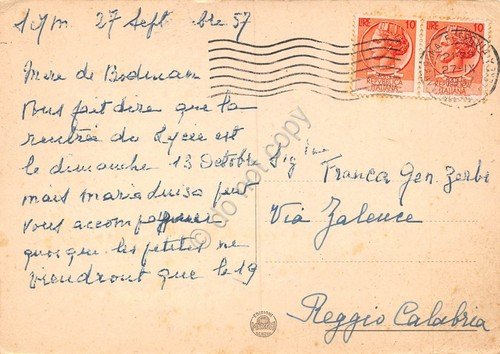 27 Septembre 57
Mère de Bodman
vous fait dire que la
rentrée du Lycée est
le dimanche 13 Octobre
mais Maria Luisa peut
vous accompagner
quoique les petites ne
viendront que le 19
LIRE 10
LIRE 10
REPUBBLICA
ITALIANA
REPUBBLICA
ITALIANA
Sig.ina
Franca Gen. Zerbi
Via
Reggio Calabria
do not copy